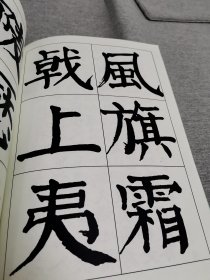 風旗霜
戟上夷